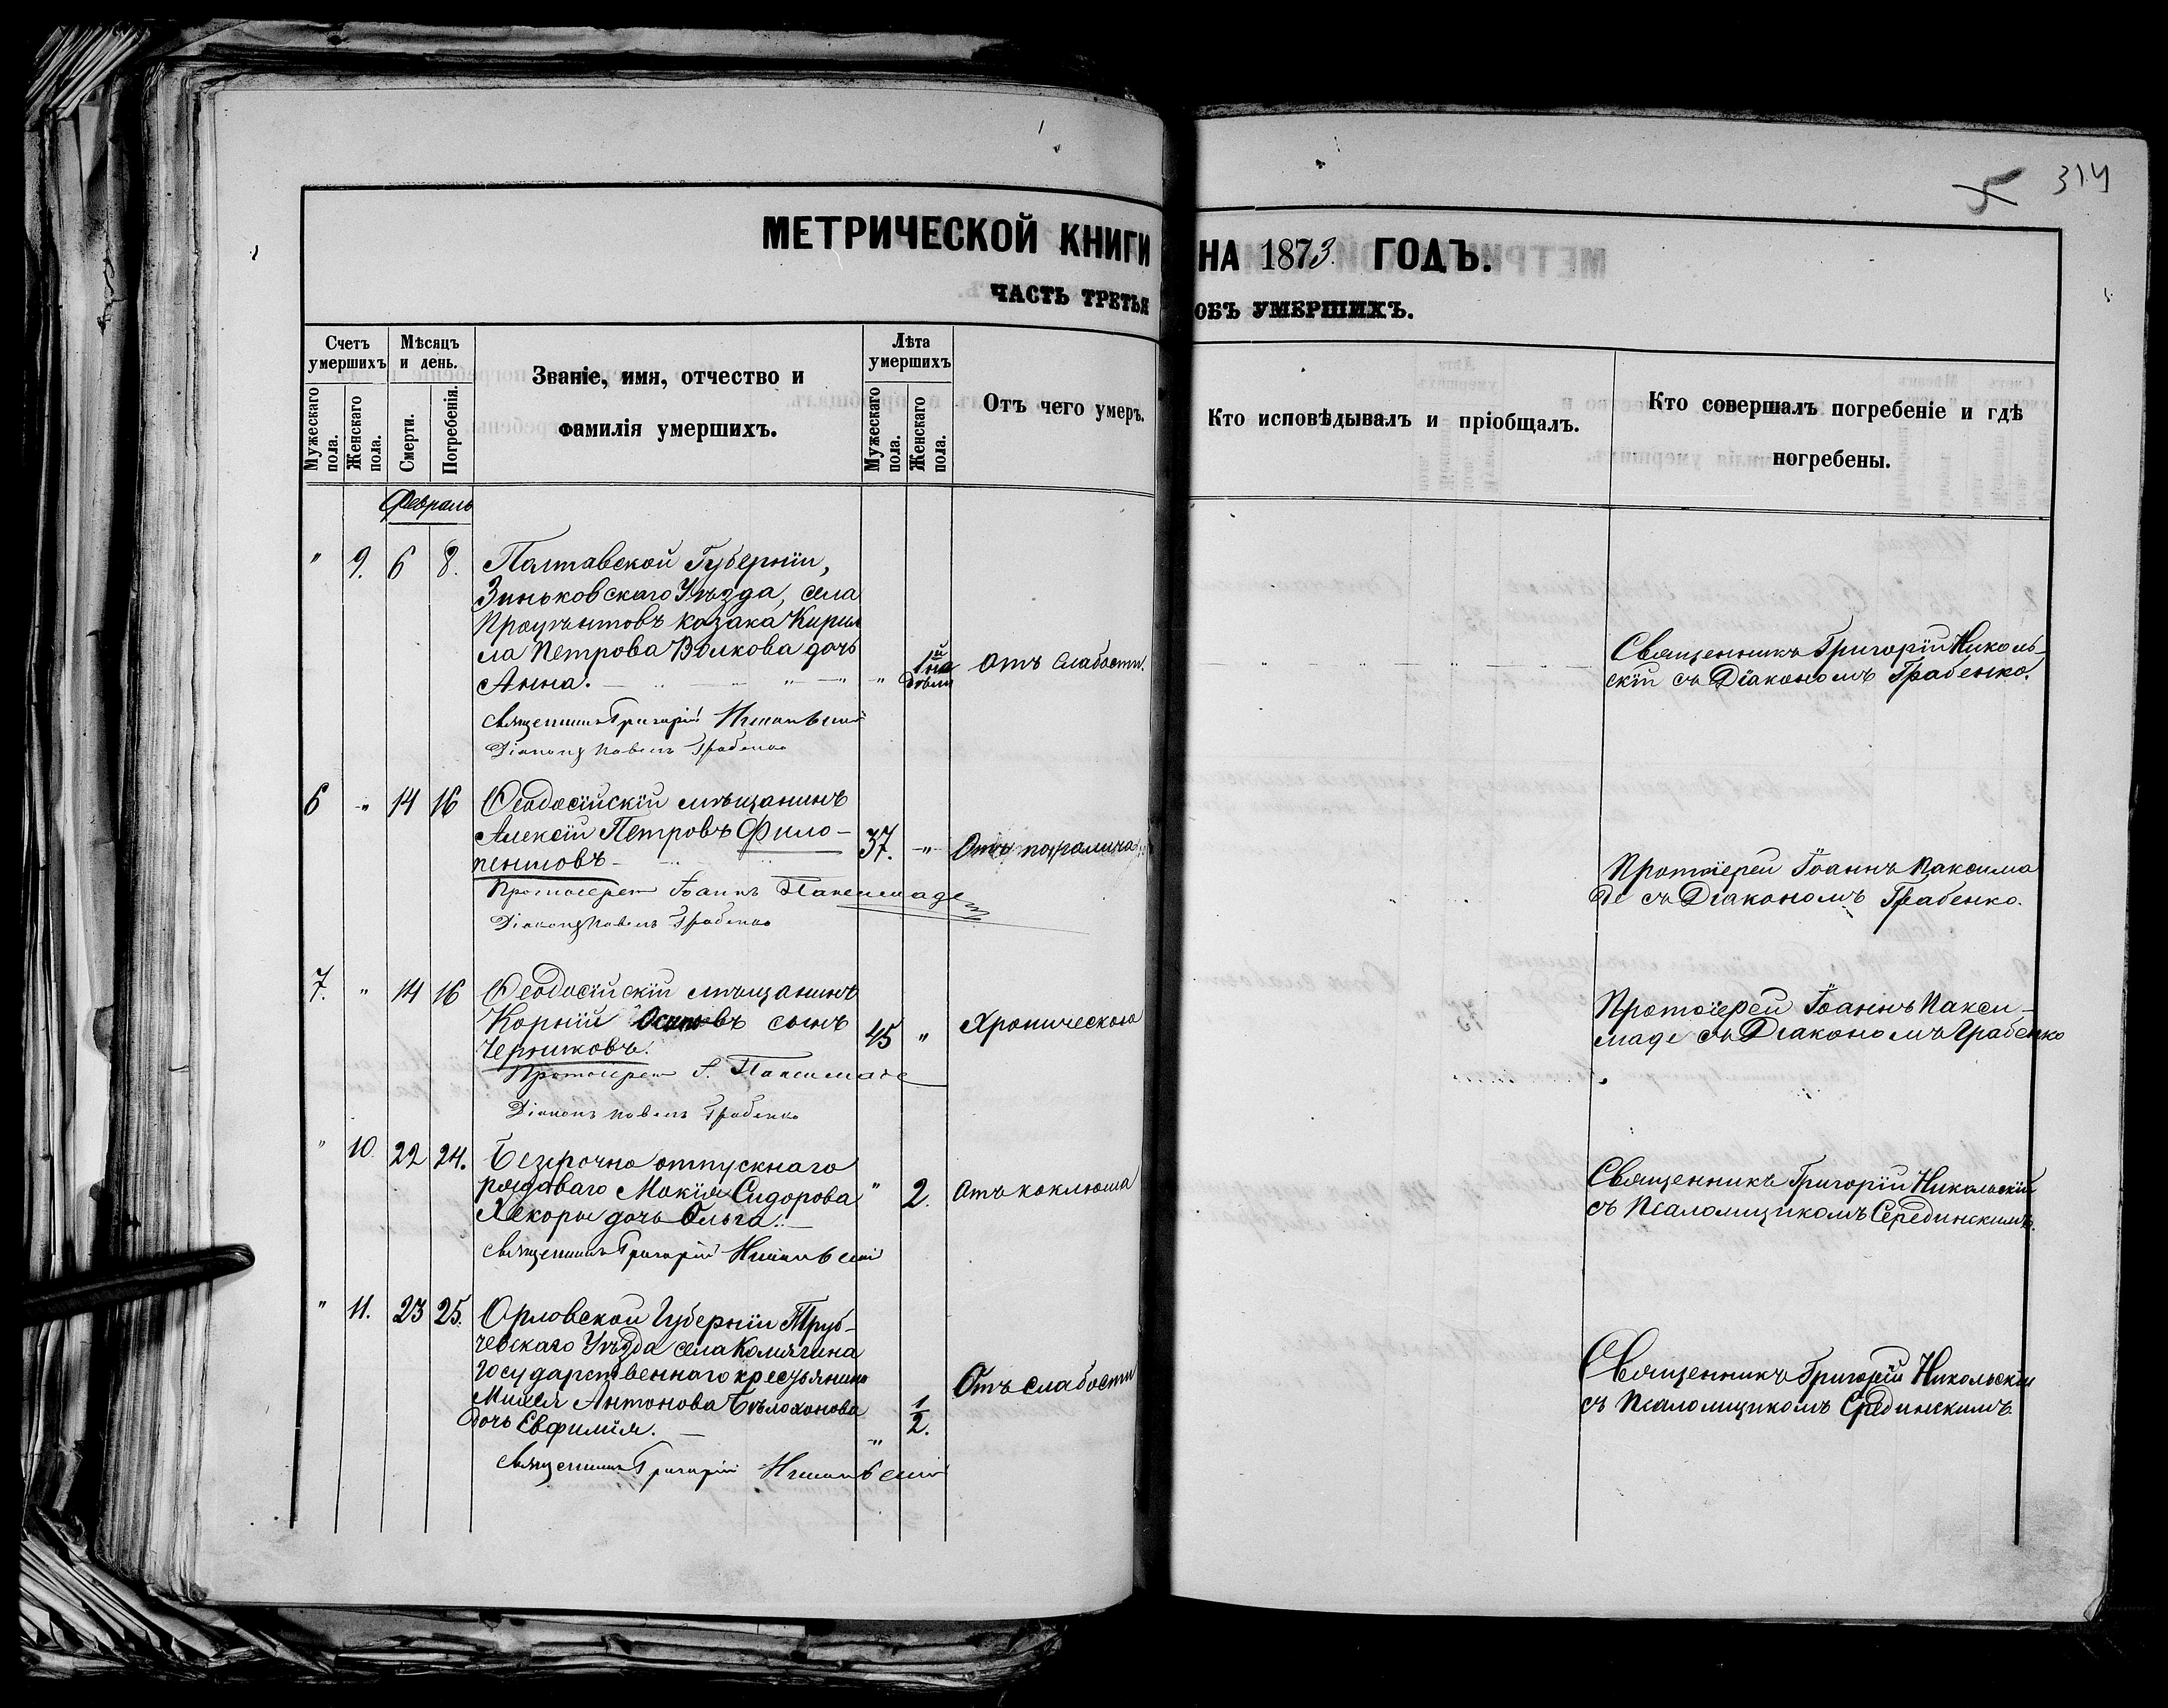 314
5
МЕТРИЧЕСКОЙ КНИГИ НА 1873 ГОДЪ.
ЧАСТЬ ТРЕТЬЯ ОБЪ УМЕРШИХЪ.
Счетъ умершихъ
Мѣсяцъ и день.
Званіе, имя, отчество и фамилія умершихъ.
Лѣта умершихъ
Отъ чего умеръ.
Кто исповѣдывалъ и пріобщалъ.
Кто совершалъ погребеніе и гдѣ погребены.
Мужескаго пола.
Женскаго пола.
Смерти.
Погребенія.
Мужескаго пола.
Женскаго пола.
Февраль
" 9. 6 8.
Полтавской Губерніи,
Зиньковскаго Уѣзда, села
козака Кирил
ла Петрова Волкова дочь
Анна.
" 1й
Отъ слабости.
Священникъ Григорій Николь-
скій съ Діакономъ Грабенко.
Священникъ Григорій Никольскій
Діаконъ Павелъ Грабенко
6 " 14 16
Ѳеодосійскій мѣщанинъ
Алексій Петровъ Фило-
пентовъ
37. "
Отъ паралича
Протоіерей Іоаннъ Паксима
де съ Діакономъ Грабенко.
Протоіерей Іоаннъ Паксимаде
Діаконъ Павелъ Грабенко
7. " 14 16
Ѳеодосійскій мѣщанинъ
Корній Осиповъ сынъ
Черниковъ.
45 "
Хроническою
Протоіерей Іоаннъ Пакси-
маде съ Діакономъ Грабенко
Протоіерей І. Паксимаде
Діаконъ Павелъ Грабенко
" 10. 22 24.
Безсрочно отпускнаго
рядоваго Мокія Сидорова
Хекоры дочь Ольга.
" 2.
Отъ коклюша
Священникъ Григорій Никольскій
съ Псаломщикомъ Серединскимъ.
Священникъ Григорій Никольскій
" 11. 23 25.
Орловской Губерніи Труб-
чевскаго Уѣзда села Колягина
государственнаго крестьянина
Антонова Бѣлохонова
дочь Евфимія.
" 1/2.
Отъ слабости
Священникъ Григорій Никольскій
съ Псаломщикомъ Серединскимъ.
Священникъ Григорій Никольскій